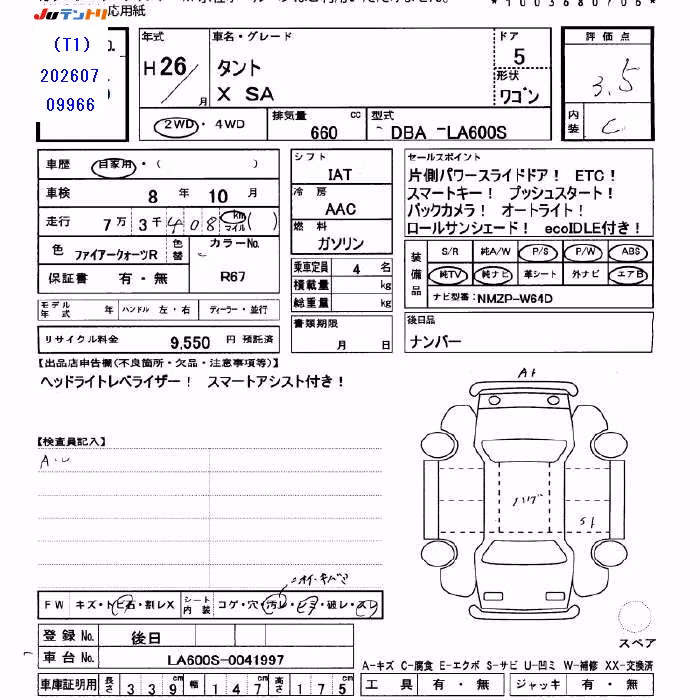 Juテントリ 応用紙
(T1)
202607
09966
年式 車名・グレード ドア 評価点
H26/ 月 タント 5 3.5
X SA 形状 ワゴン
内装 C
2WD・4WD 排気量 660 cc 型式 DBA-LA600S
車歴 自家用・( )
車検 8年 10月
走行 7万3千408 km マイル ( )
色 ファイアークォーツR 色替 カラーNo. R67
保証書 有・無
モデル年式 年 ハンドル 左・右 ディーラー・並行
リサイクル料金 9,550 円 預託済
シフト IAT
冷房 AAC
燃料 ガソリン
乗車定員 4 名
積載量 kg
総重量 kg
書類期限 月 日
セールスポイント
片側パワースライドドア! ETC!
スマートキー! プッシュスタート!
バックカメラ! オートライト!
ロールサンシェード! ecoIDLE付き!
装備品 S/R 純A/W P/S P/W ABS
純TV 純ナビ 革シート 外ナビ エアB
ナビ型番: NMZP-W64D
後日品
ナンバー
【出品店申告欄(不良箇所・欠品・注意事項等)】
ヘッドライトレベライザー! スマートアシスト付き!
【検査員記入】
A1
FW キズ・トビ石・割レX シート内装 コゲ・穴・汚レ・シミ・破レ・スレ
登録No. 後日
車台No. LA600S-0041997
車庫証明用 長さ 339cm 幅 147cm 高さ 175cm
スペア
A-キズ C-腐食 E-エクボ S-サビ U-凹ミ W-補修 XX-交換済
工具 有・無 ジャッキ 有・無